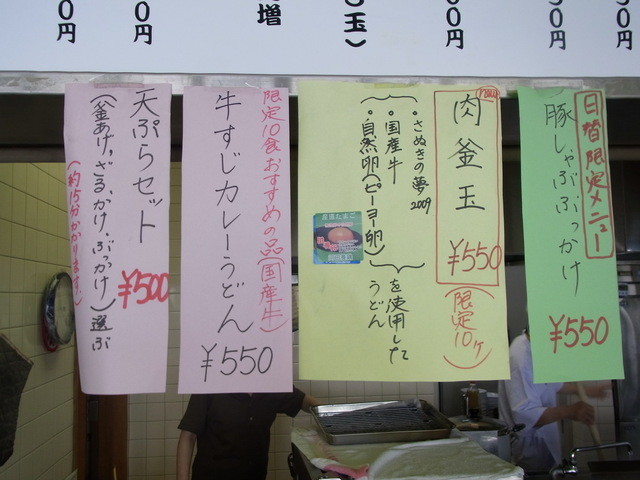 0円
00円
00円
玉)
増
00円
0円
日替限定メニュー
豚しゃぶぶっかけ
¥550
new
肉釜玉
¥550
(限定10ケ)
・さぬきの夢2009
・国産牛
・自然卵(ピーヨ卵)
を使用した
うどん
限定10食おすすめの品(国産牛)
牛すじカレーうどん
¥550
天ぷらセット
¥500
(釜あげ,ざる,かけ,ぶっかけ)選ぶ
(約15分かかります。)